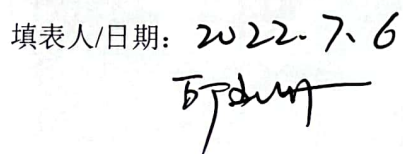 填表人/日期：2022.7.6